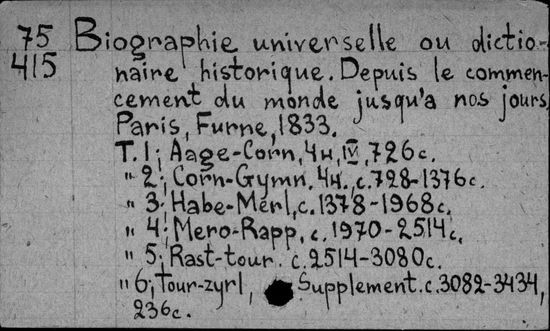 75 Biographie universelle ou dictio-
415 naire historique. Depuis le commen-
cement du monde jusqu'a nos jours,
Paris, Furne, 1833.
T. 1; Aage-Corn, 4н, IV, 726с.
" 2; Corn-Gymn. 4н., с. 728-1376с.
" 3; Habe-Merl, с. 1378-1968с.
" 4; Mero-Rapp, с. 1970-2514с.
" 5; Rast-tour. с. 2514-3080с.
" 6; Tour-zyrl, Supplement. с. 3082-3434,
236с.